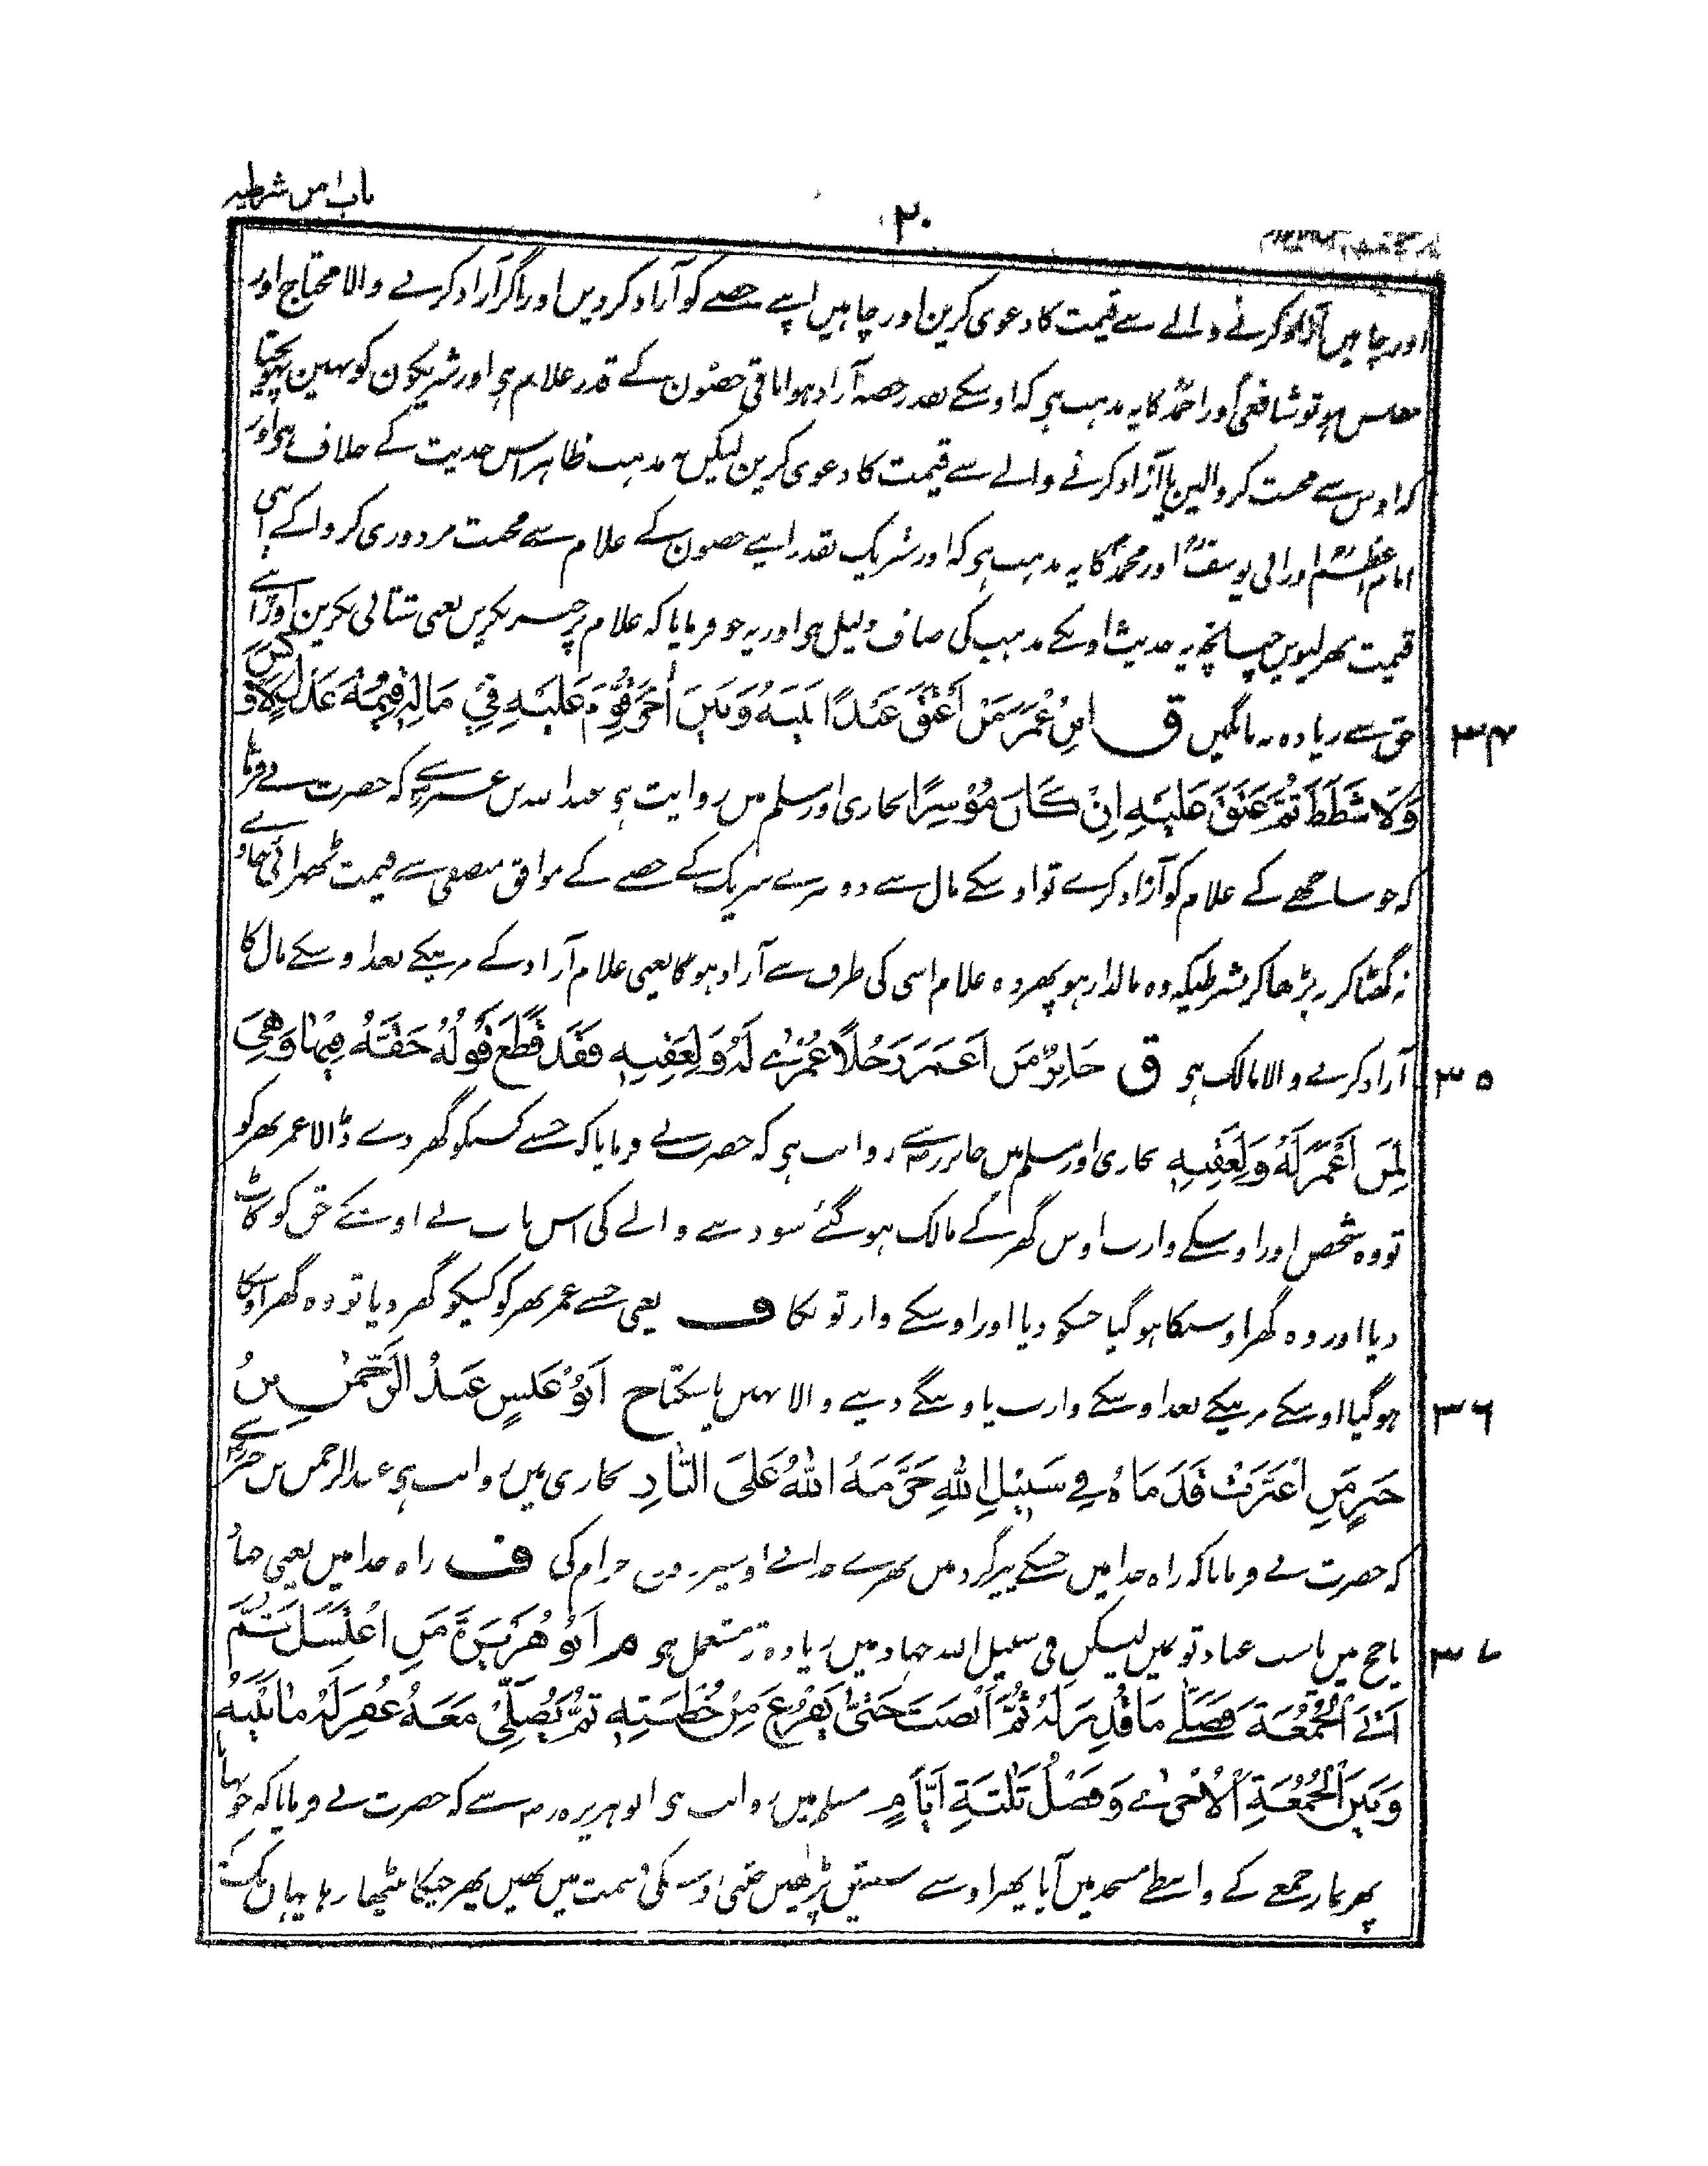 باب من شرطیہ
۲۰
اور چاہیں آزاد کرنے والے سے قیمت کا دعوی کرین اور چاہیں اپنے حصے کو آزاد کر دیں اور اگر آزاد کرنے والا محتاج اور
مفلس ہو تو شافعی اور احمد کا یہ مذہب ہی کہ اوسکے بعد حصہ آزاد ہوا باقی حصون کے قدر غلام ہی اور شریکون کو نہین پہونچتا
کہ اوس سے محنت کروالین یا آزاد کرنے والے سے قیمت کا دعوی کرین لیکن یہ مذہب ظاہر اس حدیث کے خلاف ہی اور
امام اعظم اور ابی یوسف اور محمد کا یہ مذہب ہی کہ اور شریک بقدر اپنے حصون کے غلام سے محنت مزدوری کروا کے اپنی
قیمت بھر لیویں چنانچہ یہ حدیث اونکے مذہب کی صاف دلیل ہی اور یہ جو فرمایا کہ غلام پر جبر نکریں یعنی ستانی نکرین اور اپنے
۳۴ حق سے زیادہ نہ مانگیں ق ابْنِ عُمَرَ مَنْ أَعْتَقَ عَبْدًا بَيْنَهُ وَبَيْنَ آخَرَ قُوِّمَ عَلَيْهِ فِي مَالِهٖ قِيْمَةُ عَدْلٍ لَا وَكْسَ
وَلَا شَطَطَ ثُمَّ عَتَقَ عَلَيْهِ اِنْ كَانَ مُوْسِرًا بخاری اور مسلم میں روایت ہی عبد اللہ بن عمر سے کہ حضرت نے فرمایا
کہ جو ساجھے کے غلام کو آزاد کرے تو اوسکے مال سے دوسرے شریک کے حصے کے موافق منصفی سے قیمت ٹھہرائی جاوے
نہ گھٹا کر نہ بڑھا کر بشرطیکہ وہ مالدار ہو پھر وہ غلام اسی کی طرف سے آزاد ہوگا یعنی غلام آزاد کے مرنیکے بعد اوسکے مال کا
۳۵ آزاد کرنے والا مالک ہی ق جَابِرٌ مَنْ اَعْمَرَ رَجُلًا عُمْرٰى لَهٗ وَلِعَقِبِهٖ فَقَدْ قَطَعَ قَوْلُهٗ حَقَّهٗ فِيْهَا وَهِيَ
لِمَنْ اُعْمِرَ لَهٗ وَلِعَقِبِهٖ بخاری اور مسلم میں جابر رض سے روایت ہی کہ حضرت نے فرمایا کہ جسنے کسیکو گھر دے ڈالا عمر بھر کو
تو وہ شخص اور اوسکے وارث اوس گھر کے مالک ہو گئے سو دینے والے کی اس بات نے اوسکے حق کو کاٹ
دیا اور وہ گھر اوسیکا ہو گیا جسکو دیا اور اوسکے وارثوں کا ف یعنی جسنے عمر بھر کو کسیکو گھر دیا تو وہ گھر اوسکا
۳۶ ہو گیا اوسکے مرنیکے بعد اوسکے وارث پاوینگے دینے والا نہیں پا سکتا خ اَبُوْ عَبْسٍ عَبْدُ الرَّحْمٰنِ بْنُ
جَبْرٍ مَنِ اغْبَرَّتْ قَدَمَاهُ فِي سَبِيْلِ اللهِ حَرَّمَهُ اللهُ عَلَى النَّارِ بخاری میں روایت ہی عبد الرحمن بن جبر سے
کہ حضرت نے فرمایا کہ راہ خدا میں جسکے پیر گرد میں بھرے خدا نے اوسپر دوزخ حرام کی ف راہ خدا میں یعنی جہاد
۳۷ یا حج میں یا سب عبادتوں میں لیکن فی سبیل اللہ جہاد میں زیادہ تر مستعمل ہی م اَبُوْ هُرَيْرَةَ مَنِ اغْتَسَلَ ثُمَّ
اَتَى الْجُمُعَةَ فَصَلّٰى مَا قُدِّرَ لَهٗ ثُمَّ اَنْصَتَ حَتّٰى يَفْرُغَ مِنْ خُطْبَتِهٖ ثُمَّ يُصَلِّيْ مَعَهٗ غُفِرَ لَهٗ مَا بَيْنَهٗ
وَبَيْنَ الْجُمُعَةِ الْاُخْرٰى وَفَضْلُ ثَلٰثَةِ اَيَّامٍ مسلم میں روایت ہی ابو ہریرہ رض سے کہ حضرت نے فرمایا کہ جو نہایا
پھر نماز جمعے کے واسطے مسجد میں آیا پھر اوسنے سنتیں پڑھیں جتنی اوسکی قسمت میں تھیں پھر چپکا بیٹھا رہا یہاں تک کہ